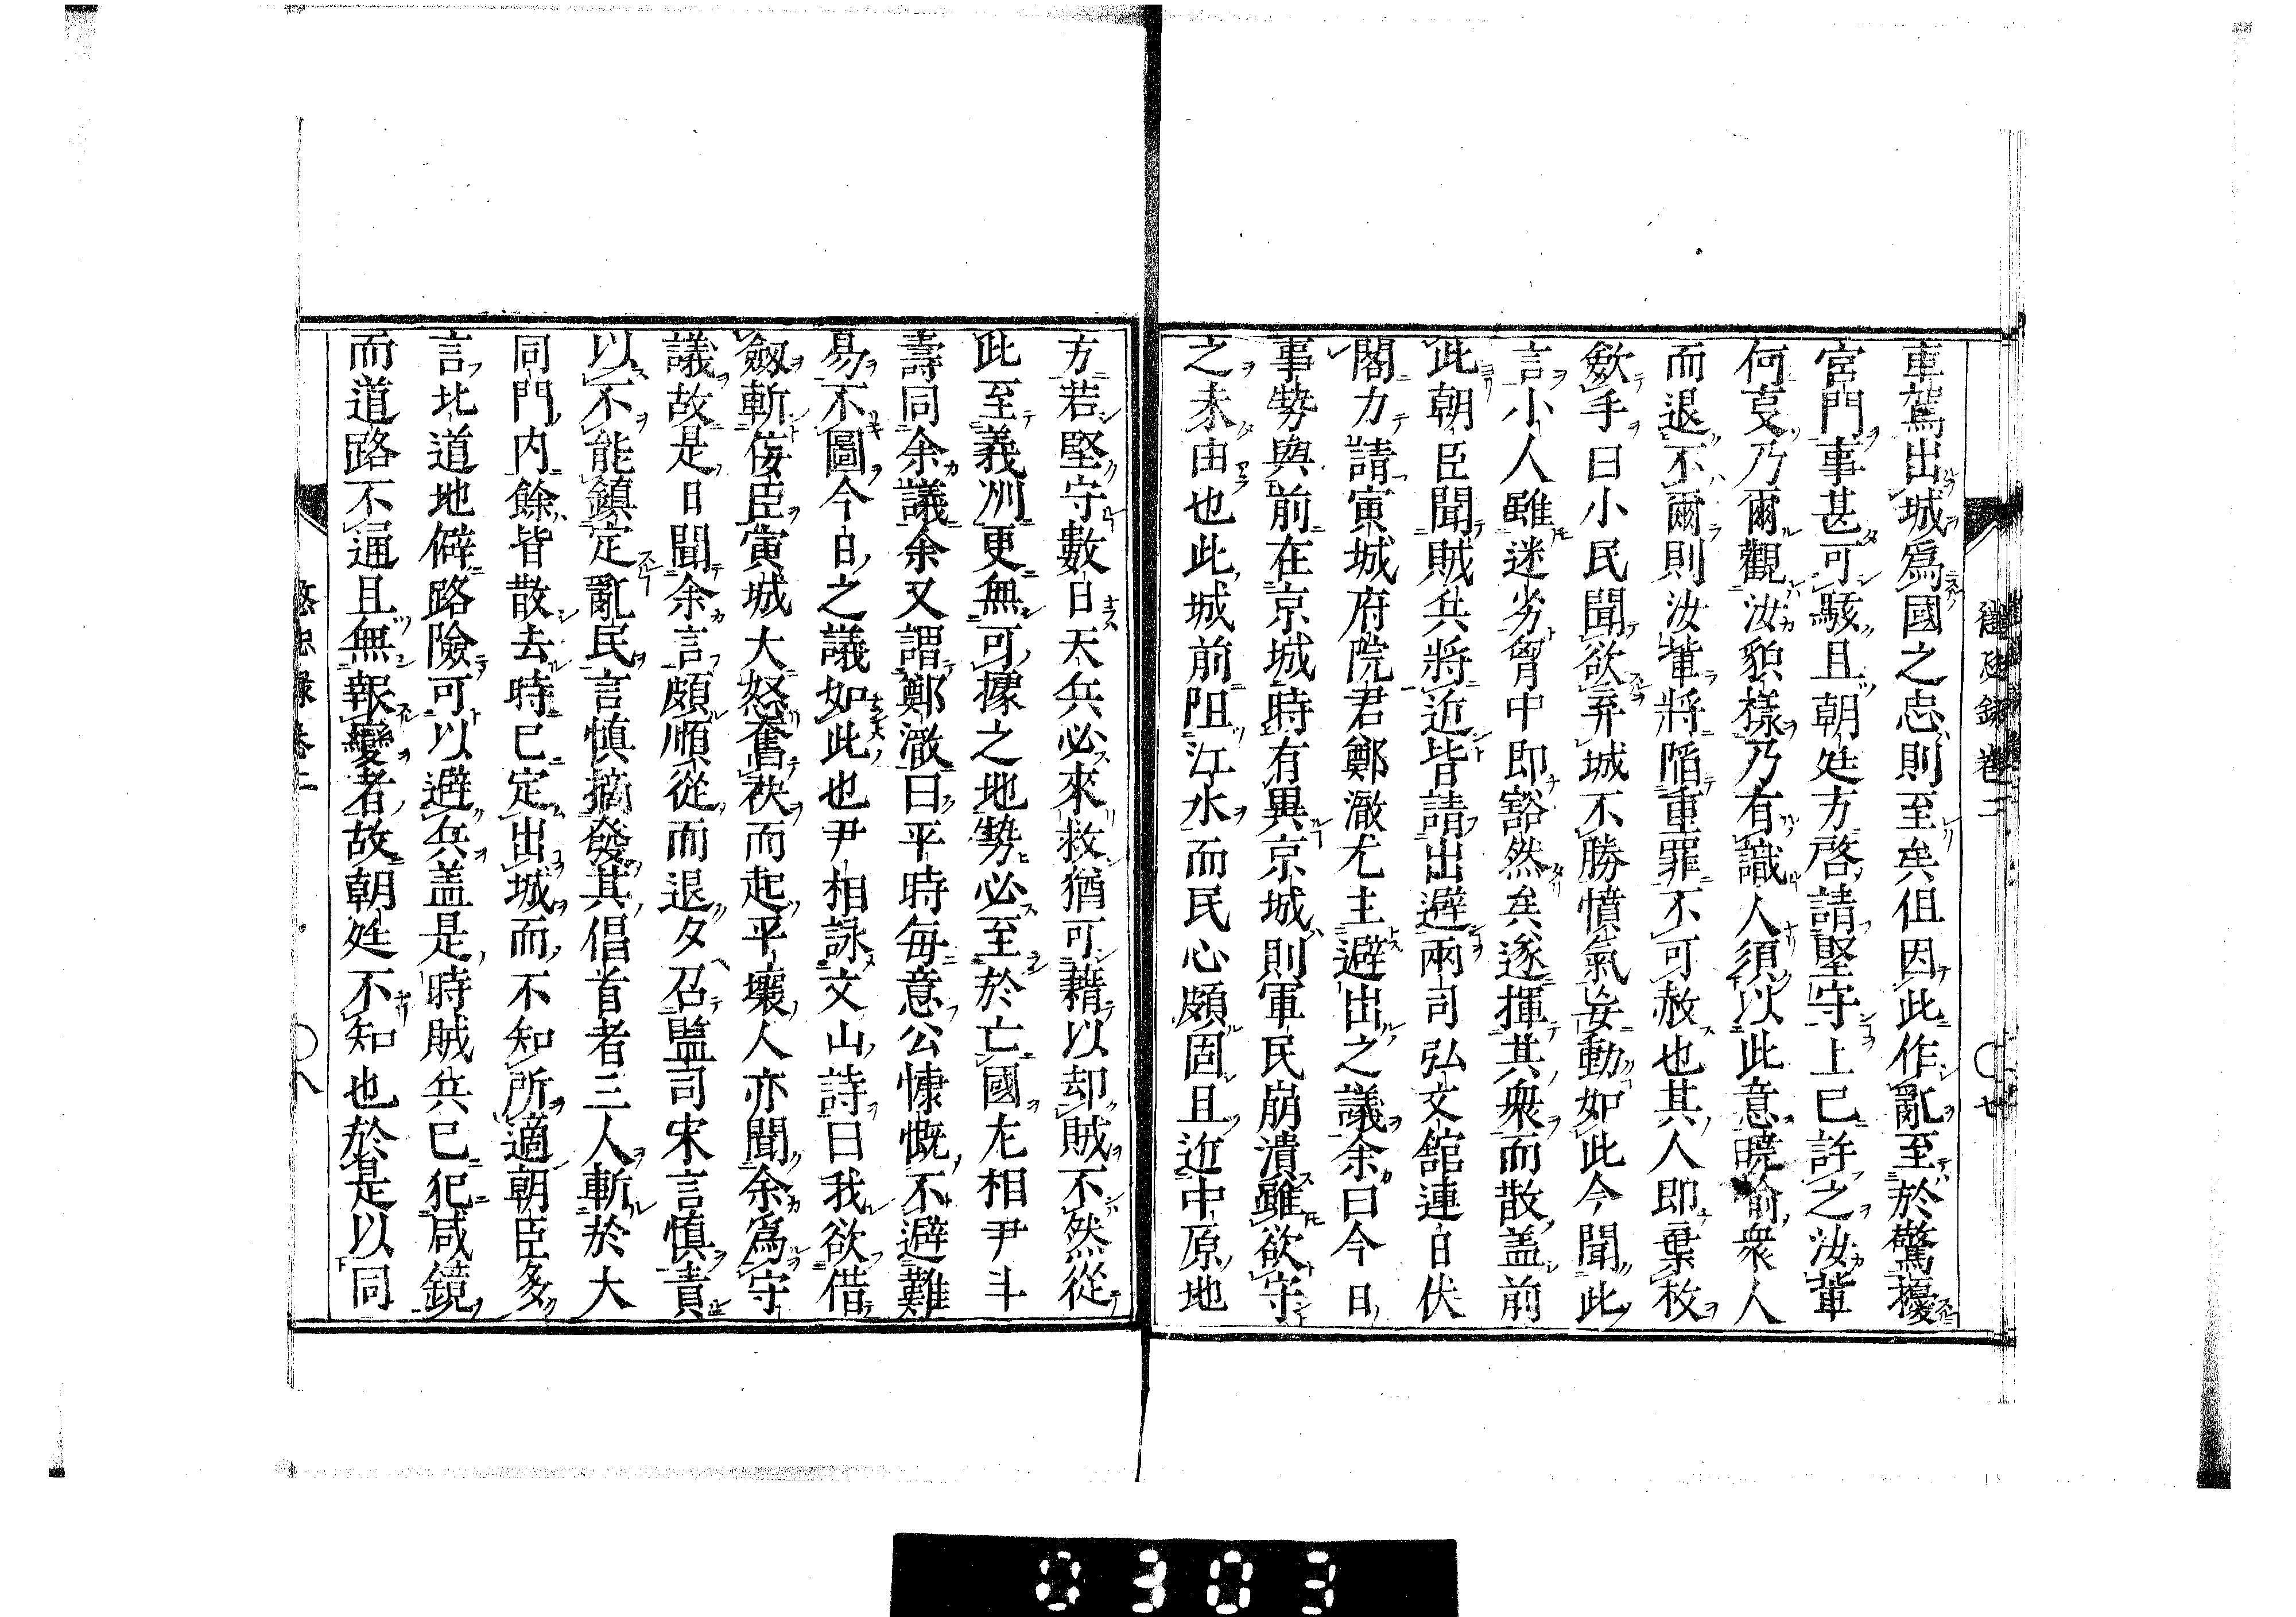 懲毖録 卷二 〇七
車駕出城爲國之忠則至矣但因此作亂至於驚擾
宮門事甚可駭且朝廷方啓請堅守上已許之汝輩
何叓乃爾觀汝貌様乃有識人須以此意曉諭衆人
而退不爾則汝輩将陥重罪不可赦也其人即棄杖
斂手曰小民聞欲弃城不勝憤氣妄動如此今聞此
言小人雖迷劣胷中即豁然矣遂揮其衆而散盖前
此朝臣聞賊兵將近皆請出避兩司弘文舘連日伏
閣力請寅城府院君鄭澈尤主避出之議余曰今日
事勢與前在京城時有異京城則軍民崩潰雖欲守
之末由也此城前阻江水而民心頗固且近中原地
方若堅守數日天兵必來救猶可藉以却賊不然從
此至義州更無可據之地勢必至於亡國左相尹斗
壽同余議余又謂鄭澈曰平時毎意公慷慨不避難
易不圖今日之議如此也尹相詠文山詩曰我欲借
劔斬佞臣寅城大怒奮袂而起平壤人亦聞余爲守
議故是日聞余言頗順從而退夕召監司宋言慎責
以不能鎮定亂民言慎摘發其倡首者三人斬於大
同門内餘皆散去時已定出城而不知所適朝臣多
言北道地僻路險可以避兵盖是時賊兵已犯咸鏡
而道路不通且無報變者故朝廷不知也於是以同
懲毖録卷二 〇八
0303